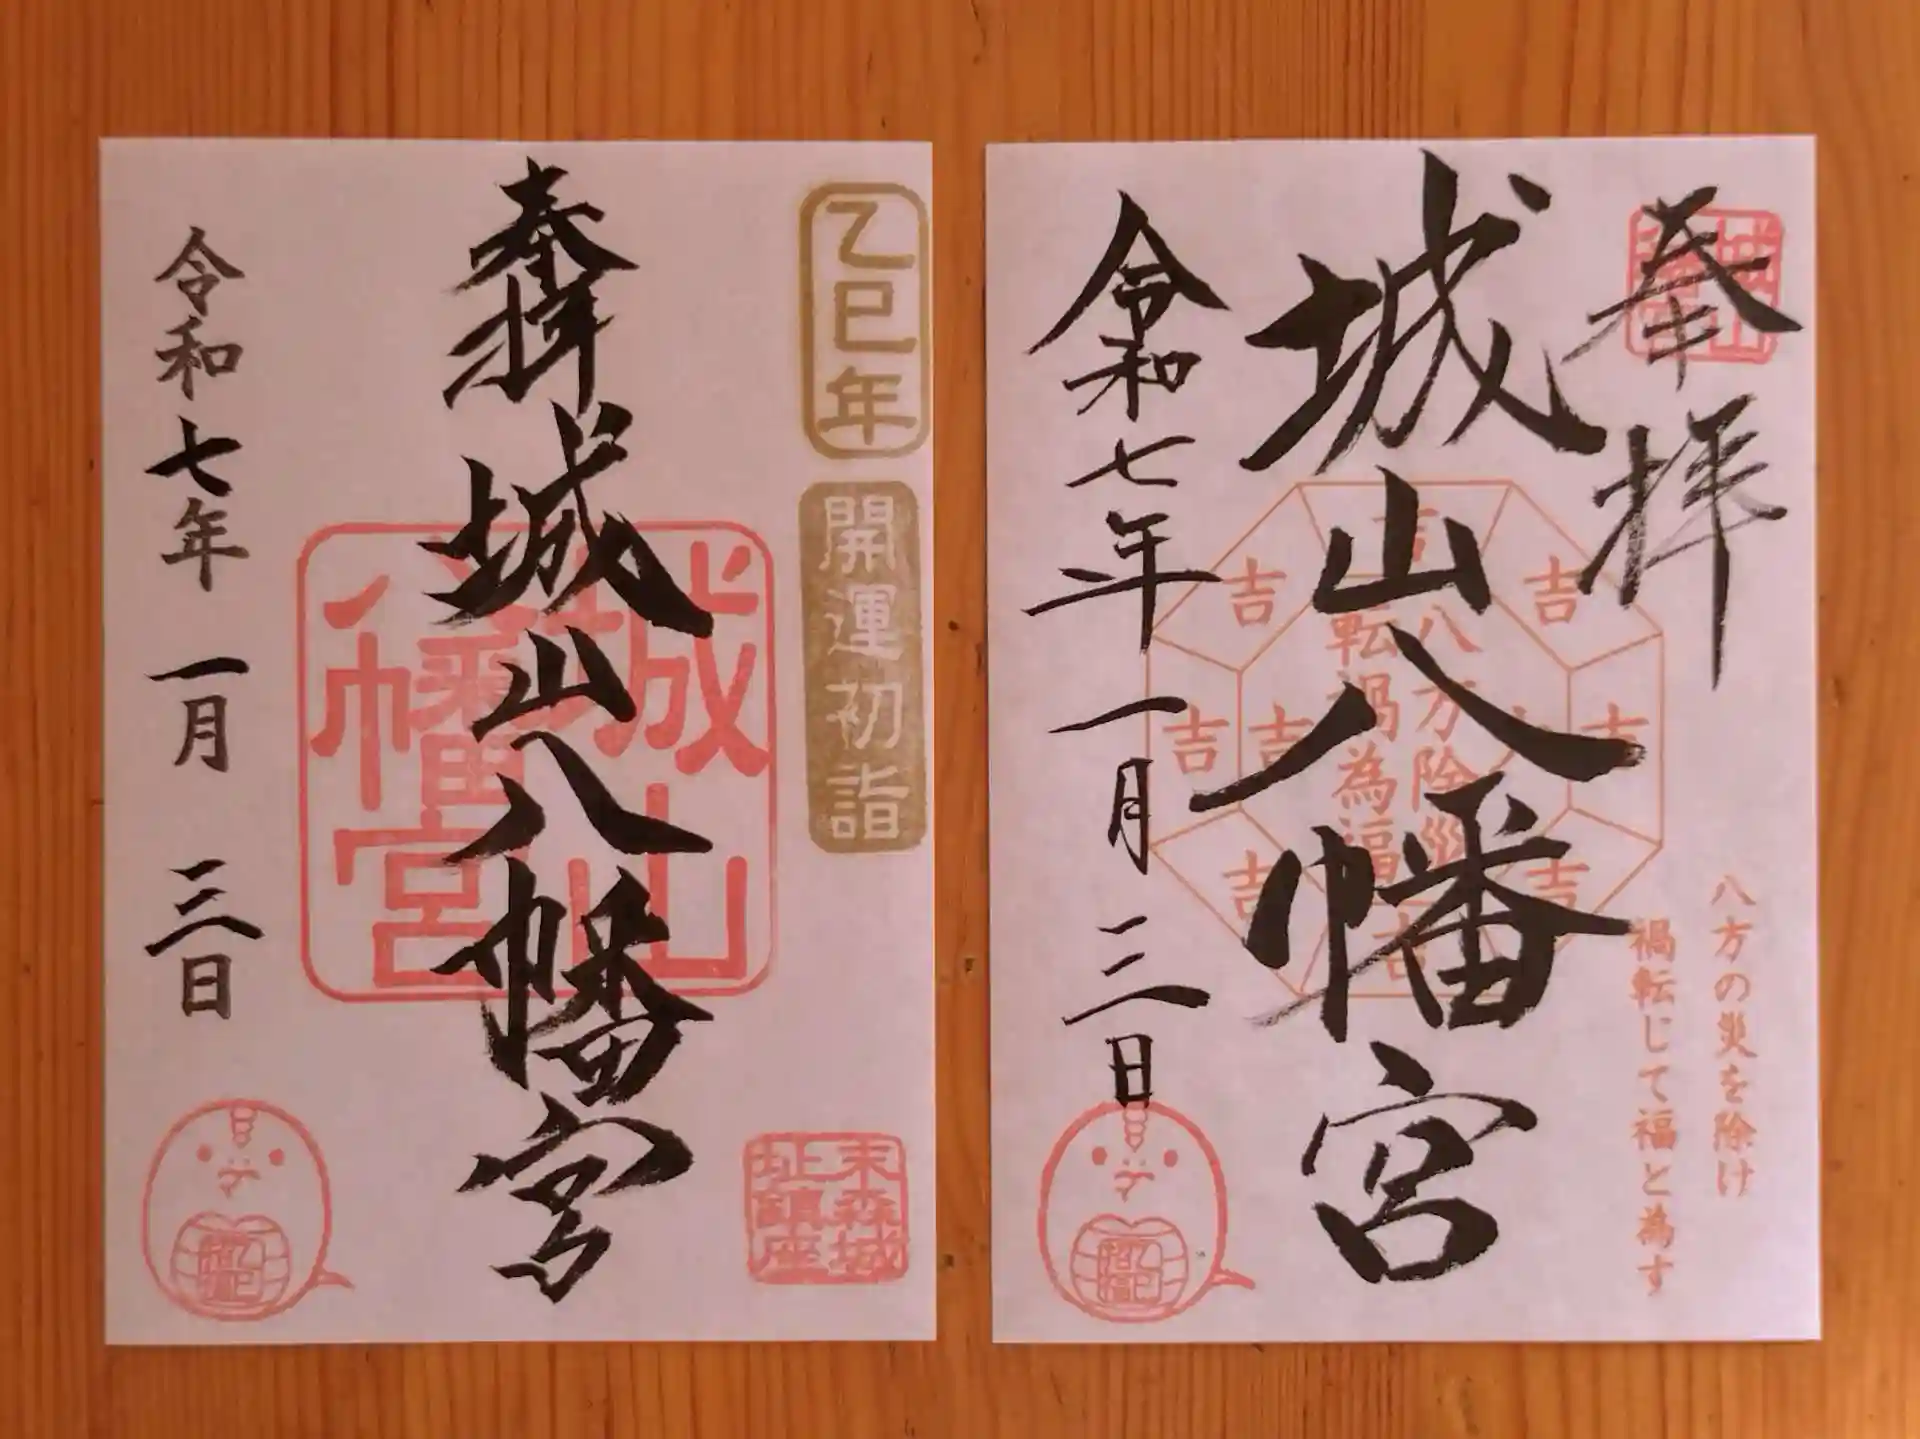 乙巳年
開運初詣
奉拝
城山八幡宮
城山
八幡宮
令和七年 一月 三日
末森城
址鎮座
奉拝
城山八幡宮
令和七年 一月 三日
吉
吉
吉
吉
吉
吉
吉
吉
八方除災
転禍為福
八方の災を除け
禍転じて福と為す